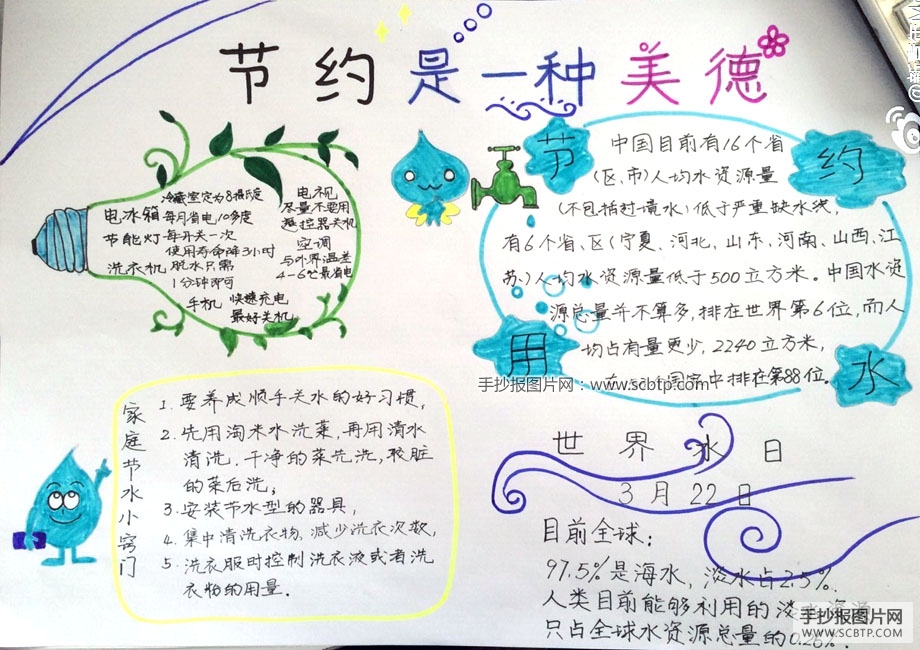 节约是一种美德
冷藏室定为8摄氏度
电冰箱 每月省电10多度
节能灯 每开关一次
使用寿命降3小时
洗衣机 脱水只需
1分钟即可
手机 快速充电
最好关机
电视
尽量不要用
遥控器关机
空调
与外界温差
4-6℃最省电
节约用水
中国目前有16个省
(区、市)人均水资源量
(不包括过境水)低于严重缺水线,
有6个省、区(宁夏、河北、山东、河南、山西、江
苏)人均水资源量低于500立方米。中国水资
源总量并不算多,排在世界第6位,而人
均占有量更少,2240立方米,
国家中排在第88位。
手抄报图片网:www.scbtp.com
家庭节水小窍门
1. 要养成顺手关水的好习惯,
2. 先用淘米水洗菜,再用清水
清洗.干净的菜先洗,较脏
的菜后洗;
3. 安装节水型的器具,
4. 集中清洗衣物,减少洗衣次数,
5. 洗衣服时控制洗衣液或者洗
衣粉的用量.
世界水日
3月22日
目前全球:
97.5%是海水,淡水占2.5%.
人类目前能够利用的淡水
只占全球水资源总量的0.26%.
手抄报图片网
WWW.SCBTP.COM